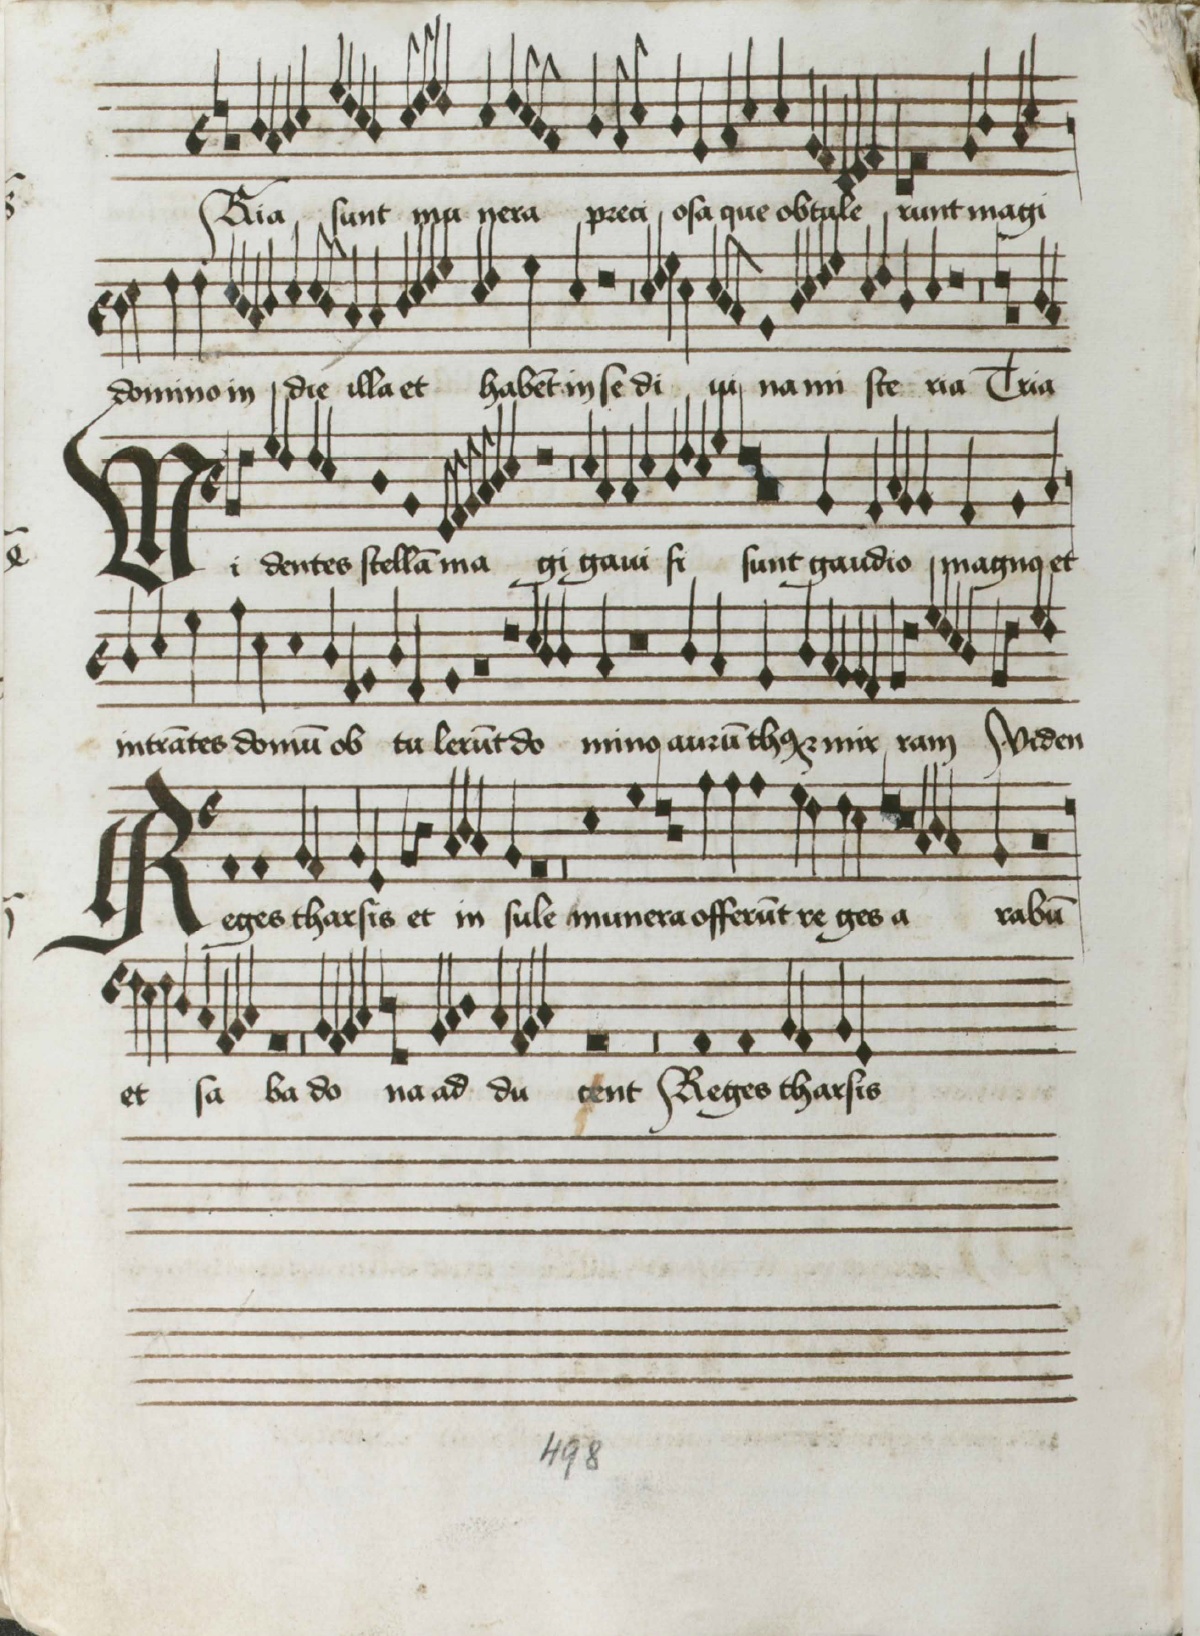 Ria sunt mu nera preci osa que obtule runt magi
domino in die illa et habēt in se di ui na mi ste ria Tria
Vi dentes stellā ma gi gaui si sunt gaudio magno et
intrātes domū ob tu lerūt do mino aurū th9 mir ram Viden
Reges tharsis et in sule munera offerūt re ges a rabū
et sa ba do na ad du cent Reges tharsis
498